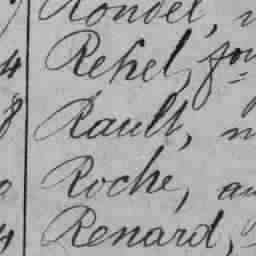 Rondel,
4 Rehel, fou
8 Rault,
Roche, au
4 Renard,